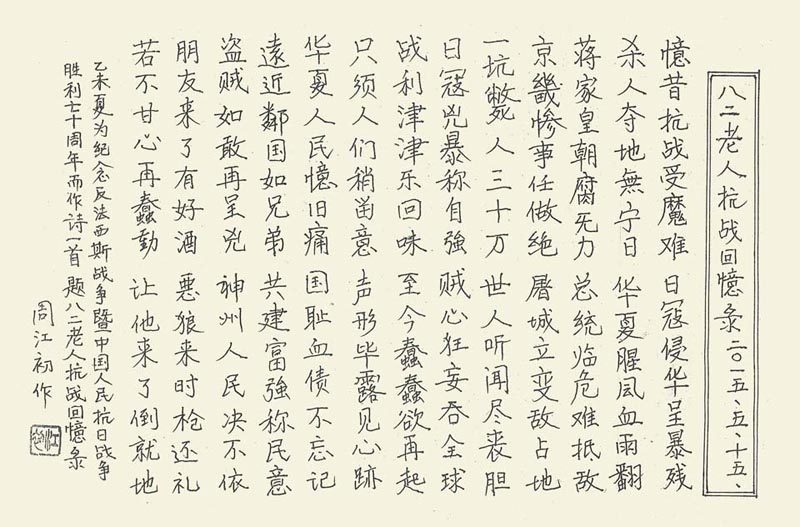 八二老人抗战回憶录 二〇一五、五、十五、
憶昔抗战受魔难 日寇侵华呈暴残
杀人夺地無宁日 华夏腥风血雨翻
蒋家皇朝腐旡力 总统临危难抵敌
京畿惨事任做绝 屠城立变敌占地
一坑毙人三十万 世人听闻尽丧胆
日寇兇暴称自強 贼心狂妄吞全球
战利津津乐回味 至今蠢蠢欲再起
只须人们稍留意 声形毕露见心跡
华夏人民憶旧痛 国耻血债不忘记
遠近鄰国如兄弟 共建富強称民意
盗贼如敢再呈兇 神州人民决不依
朋友来了有好酒 恶狼来时枪还礼
若不甘心再蠢動 让他来了倒就地
乙未夏为纪念反法西斯战争暨中国人民抗日战争
胜利七十周年而作诗一首 题八二老人抗战回憶录
周江初作